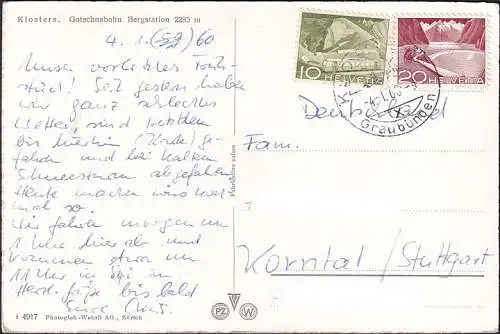 Klosters. Gotschnabahn Bergstation 2285 m
4. 1. (59) 60
Unser vorletztes
Seit gestern haben
wir ganz schlechtes
Wetter, sind trotzdem
bis hierhin
fahren und bei kaltem
Schneesturm abgefahren
Heute machen wirs
mal so.
Wir fahren morgen um
1 Uhr hier ab und
kommen etwa um
11 Uhr in
Herzl. Grüße bis bald
Eure
10 HELVETIA
20 HELVETIA
-4.1.60
Graubünden
Deutschland
Fam.
Korntal / Stuttgart
i 4917 Photoglob-Wehrli AG., Zürich
PZ W